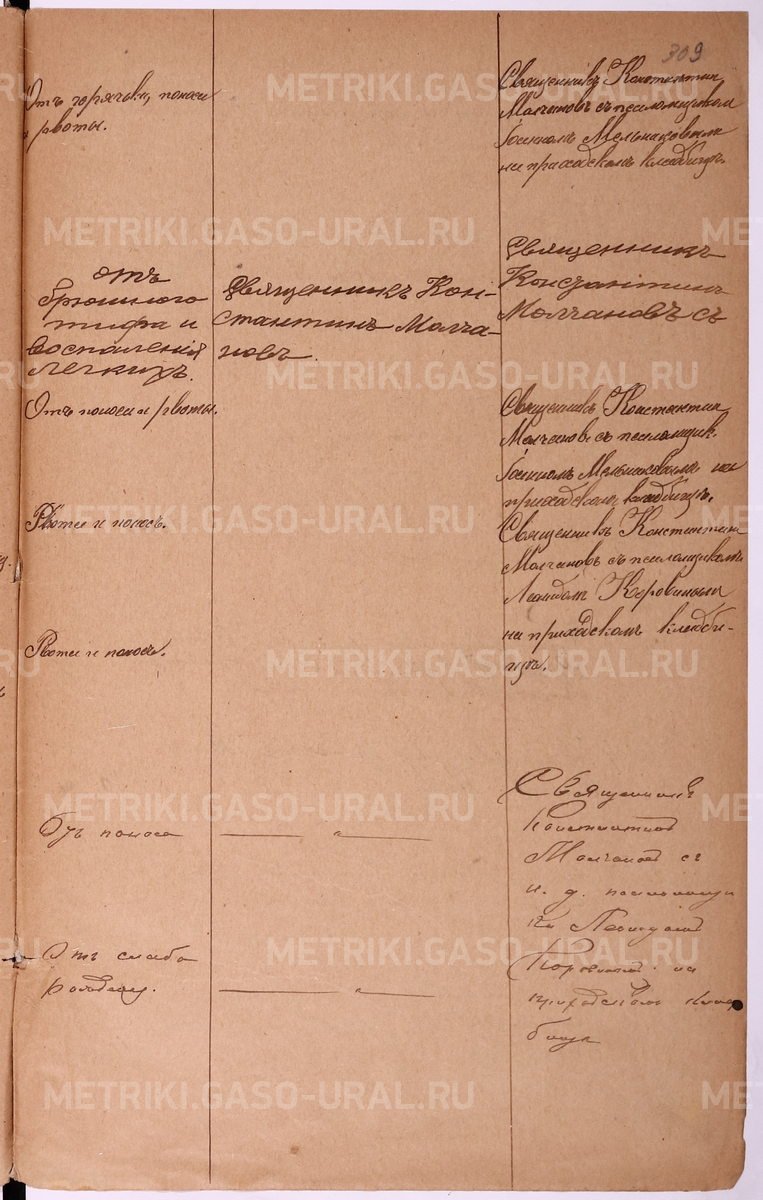 309
Отъ горячки, поноса
и рвоты.
Священникъ Константин
Молчановъ съ псаломщиком
Іоанномъ Мельнаковымъ
на приходскомъ кладбищѣ.
отъ
брюшного
тифа и
воспаления
легкихъ.
Священникъ Кон-
стантинъ Молча-
новъ.
Священникъ
Константинъ
Молчановъ съ
Отъ поноса и рвоты.
Священникъ Константин
Молчанов съ псаломщик.
Іоанномъ Мельнаковымъ на
приходскомъ кладбищѣ.
Рвоты и поносъ.
Священникъ Константинъ
Молчановъ съ псаломщикомъ
Леонидомъ Коровиным
на приходскомъ кладби-
щѣ.
Рвоты и поносъ.
Отъ поноса
Священникъ
Константинъ
Молчанов съ
и. д. псаломщи
ка Леонидом
Коровиным на
приходскомъ клад
бище
Отъ слабо
рожденія.
METRIKI.GASO-URAL.RU